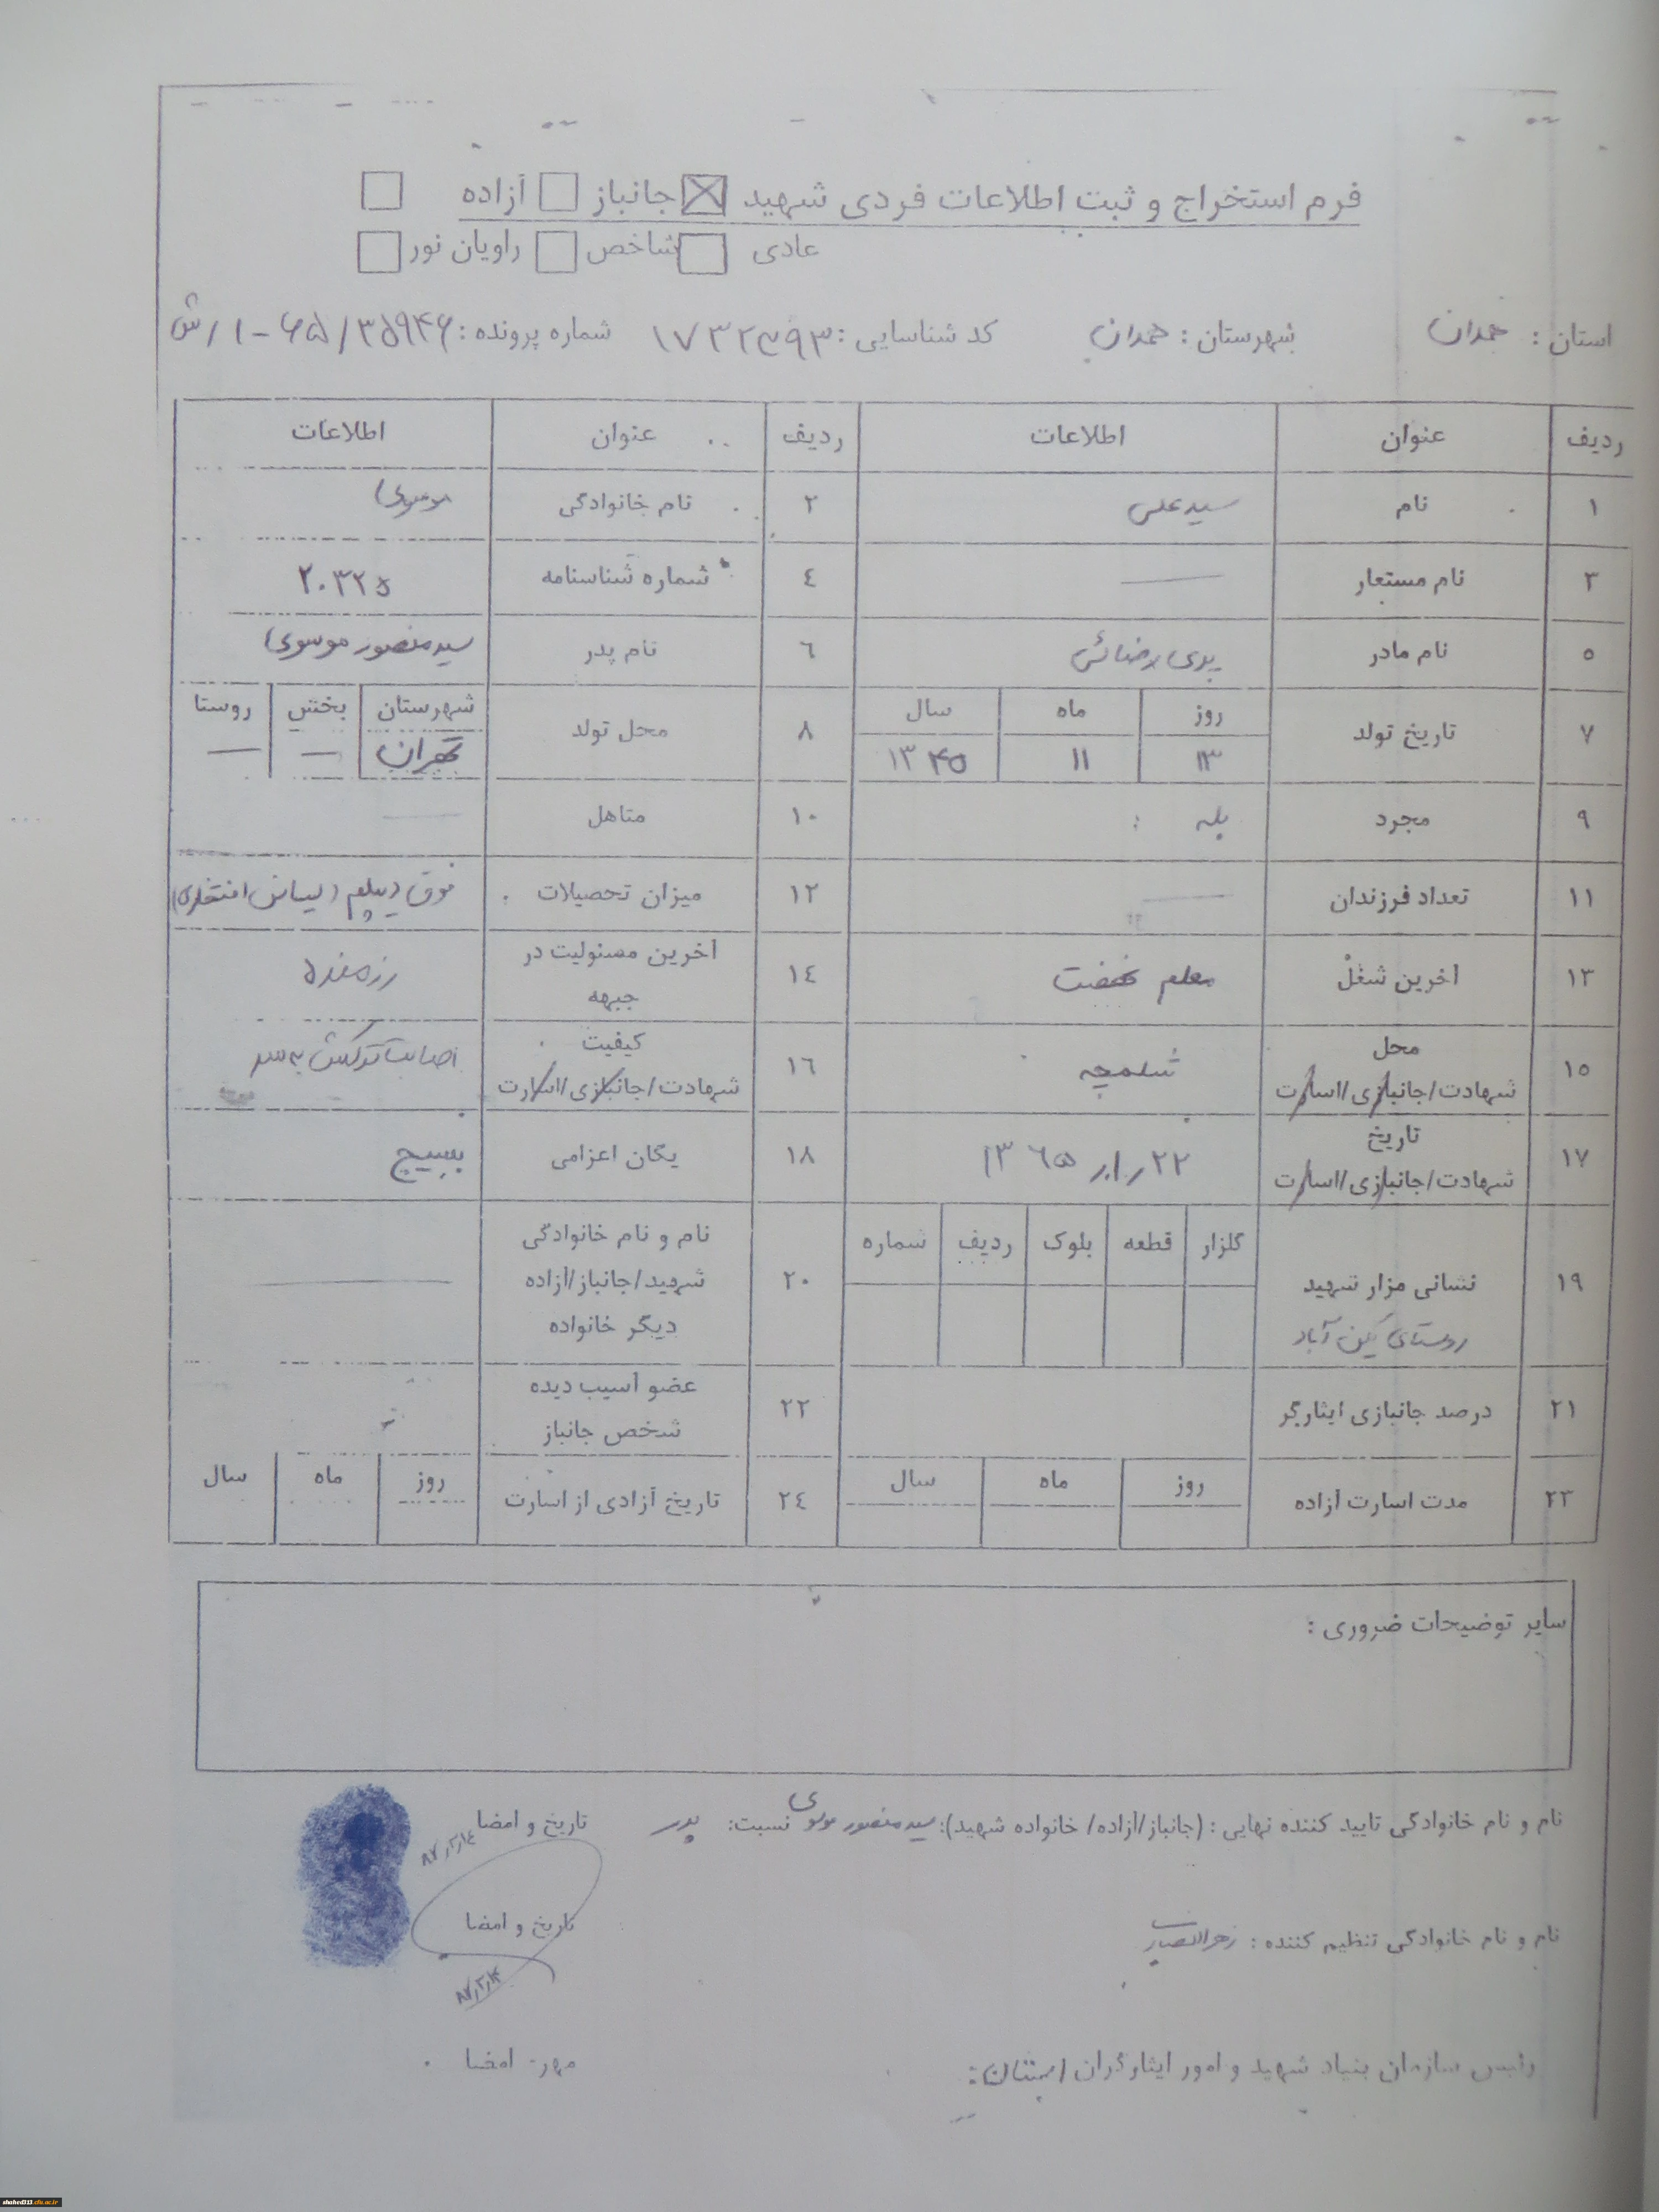 فرم استخراج و ثبت اطلاعات فردی شهید ☒ جانباز ☐ آزاده ☐
عادی ☐ شاخص ☐ راویان نور ☐
استان : همدان شهرستان : همدان کد شناسایی : ۱۷۳۲۳۹۳ شماره پرونده : ۱-۶۵/۳۵۹۴۶/ش
ردیف عنوان اطلاعات ردیف عنوان اطلاعات
۱ نام سیدعلی ۲ نام خانوادگی موسوی
۳ نام مستعار — ۴ شماره شناسنامه ۲۰۳۲۵
۵ نام مادر پری رضائی ۶ نام پدر سید منصور موسوی
۷ تاریخ تولد روز ماه سال ۸ محل تولد شهرستان بخش روستا
۱۳ ۱۱ ۱۳۴۵ تهران — —
۹ مجرد بله ۱۰ متاهل —
۱۱ تعداد فرزندان — ۱۲ میزان تحصیلات فوق دیپلم (لیسانس افتخاری)
۱۳ آخرین شغل معلم نهضت ۱۴ آخرین مسئولیت در جبهه رزمنده
۱۵ محل شهادت/جانبازی/اسارت شلمچه ۱۶ کیفیت شهادت/جانبازی/اسارت اصابت ترکش به سر
۱۷ تاریخ شهادت/جانبازی/اسارت ۱۳۶۵ ۲۲ ۱۸ یگان اعزامی بسیج
۱۹ نشانی مزار شهید روستای آباد گلزار قطعه بلوک ردیف شماره ۲۰ نام و نام خانوادگی شهید/جانباز/آزاده دیگر خانواده —
۲۱ درصد جانبازی ایثارگر ۲۲ عضو آسیب دیده شخص جانباز
۲۳ مدت اسارت آزاده روز ماه سال ۲۴ تاریخ آزادی از اسارت روز ماه سال
سایر توضیحات ضروری :
نام و نام خانوادگی تایید کننده نهایی : (جانباز/آزاده/ خانواده شهید): سید منصور موسوی نسبت: پدر تاریخ و امضا
۸۷/۲/۱۴
نام و نام خانوادگی تنظیم کننده : تاریخ و امضا
۸۷/۲/۱۴
رئیس سازمان بنیاد شهید و امور ایثارگران استان: مهر- امضا
shahed313.cfu.ac.ir